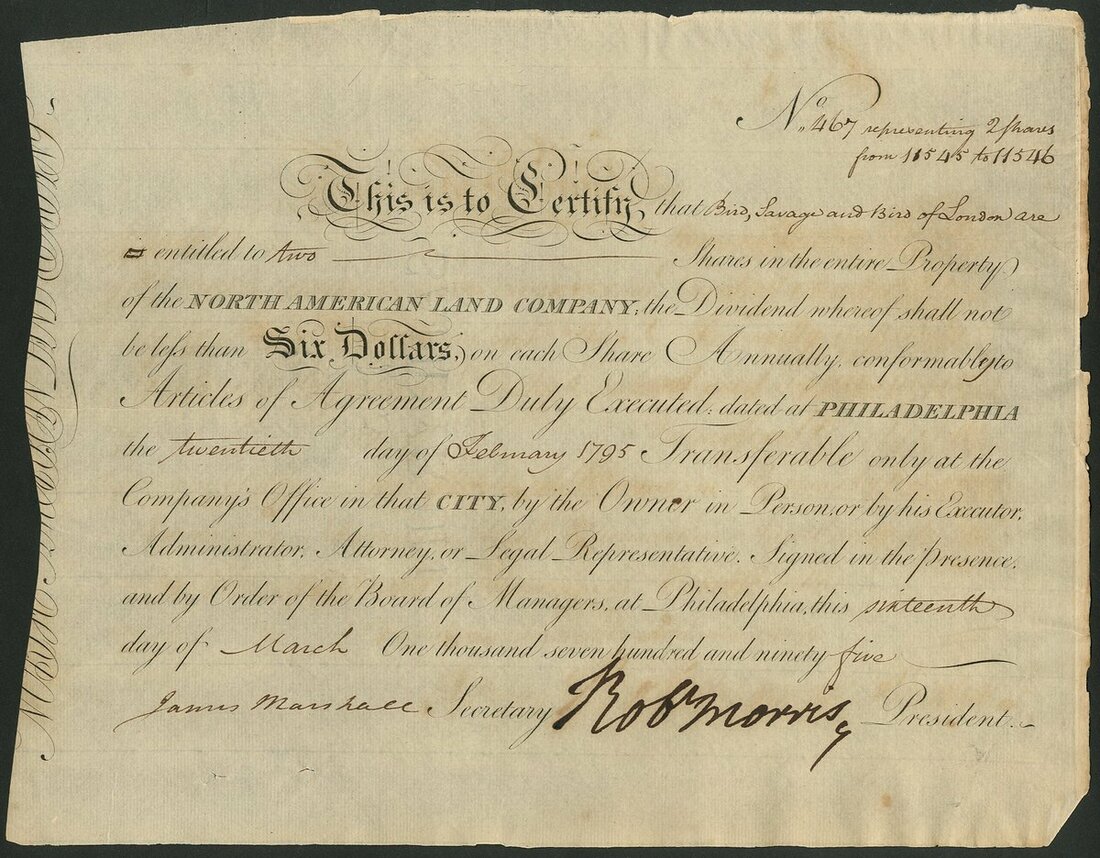 No. 467 representing 2 Shares
from 11545 to 11546
This is to Certify, that Bird, Savage and Bird of London are
entitled to two Shares in the entire Property
of the NORTH AMERICAN LAND COMPANY; the Dividend whereof shall not
be less than Six Dollars, on each Share Annually, conformably to
Articles of Agreement Duly Executed; dated at PHILADELPHIA
the twentieth day of February 1795 Transferable only at the
Company's Office in that CITY, by the Owner in Person, or by his Executor,
Administrator, Attorney, or Legal Representative. Signed in the presence,
and by Order of the Board of Managers, at Philadelphia, this sixteenth
day of March One thousand seven hundred and ninety five
James Marshall Secretary Robt Morris, President.